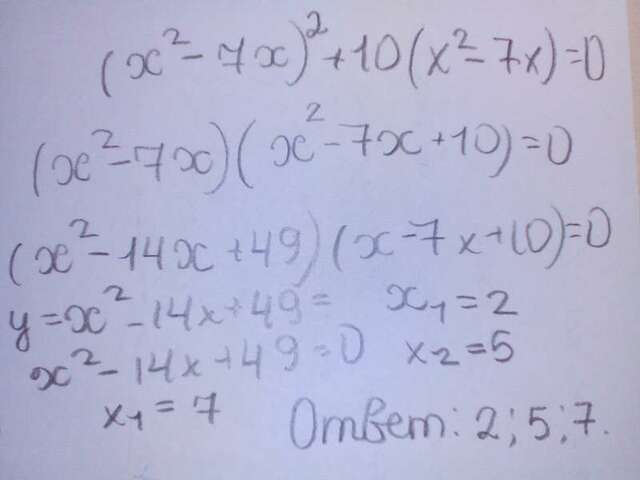 (x²-7x)²+10(x²-7x)=0
(x²-7x)(x²-7x+10)=0
(x²-14x+49)(x-7x+10)=0
y=x²-14x+49= x₁=2
x²-14x+49=0 x₂=5
x₁=7 Ответ: 2;5;7.